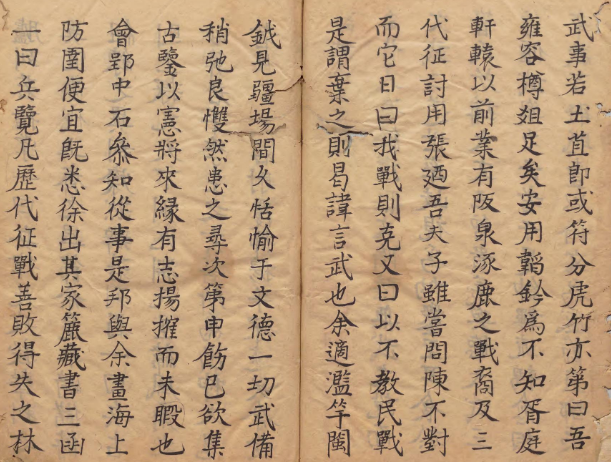 武事若土苴即或符分虎竹亦第曰吾
雍容樽俎足矣安用韜鈐為不知胥庭
軒轅以前業有阪泉涿鹿之戰裔及三
代征討用張廼吾夫子雖嘗問陳不對
而它日曰我戰則克又曰以不教民戰
是謂棄之則曷諱言武也余適濫竽閩
鉞見疆場間久恬愉于文德一切武備
稍弛良戄然患之尋次第申飭已欲集
古鑒以憲將來緣有志揚搉而未暇也
會郢中石叅知從事是邦與余畫海上
防圉便宜既悉徐出其家簏藏書三函
曰兵覽凡歷代征戰善敗得失之林